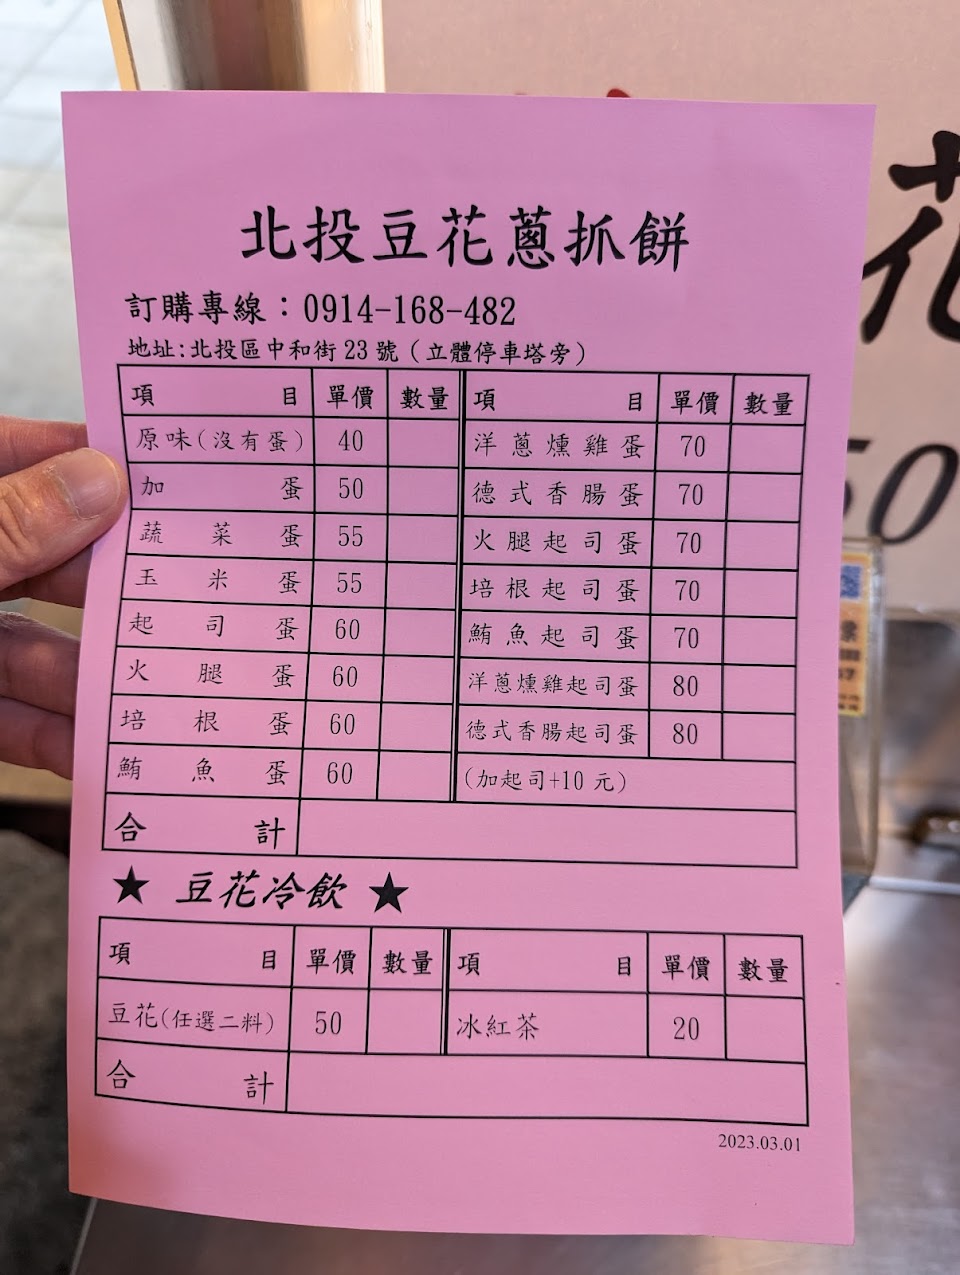 北投豆花蔥抓餅
訂購專線：0914-168-482
地址:北投區中和街 23 號（立體停車塔旁）
項目 單價 數量 項目 單價 數量
原味(沒有蛋) 40 洋蔥燻雞蛋 70
加蛋 50 德式香腸蛋 70
蔬菜蛋 55 火腿起司蛋 70
玉米蛋 55 培根起司蛋 70
起司蛋 60 鮪魚起司蛋 70
火腿蛋 60 洋蔥燻雞起司蛋 80
培根蛋 60 德式香腸起司蛋 80
鮪魚蛋 60 (加起司+10 元)
合計
★ 豆花冷飲 ★
項目 單價 數量 項目 單價 數量
豆花(任選二料) 50 冰紅茶 20
合計
2023.03.01
花
50